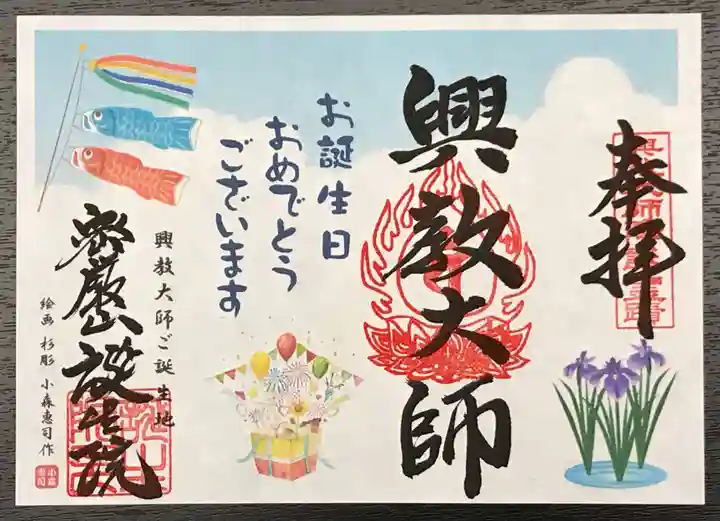 奉拝
興教大師
お誕生日
おめでとう
ございます
興教大師ご誕生地
密厳山誕生院
絵画 杉彫 小森惠司作